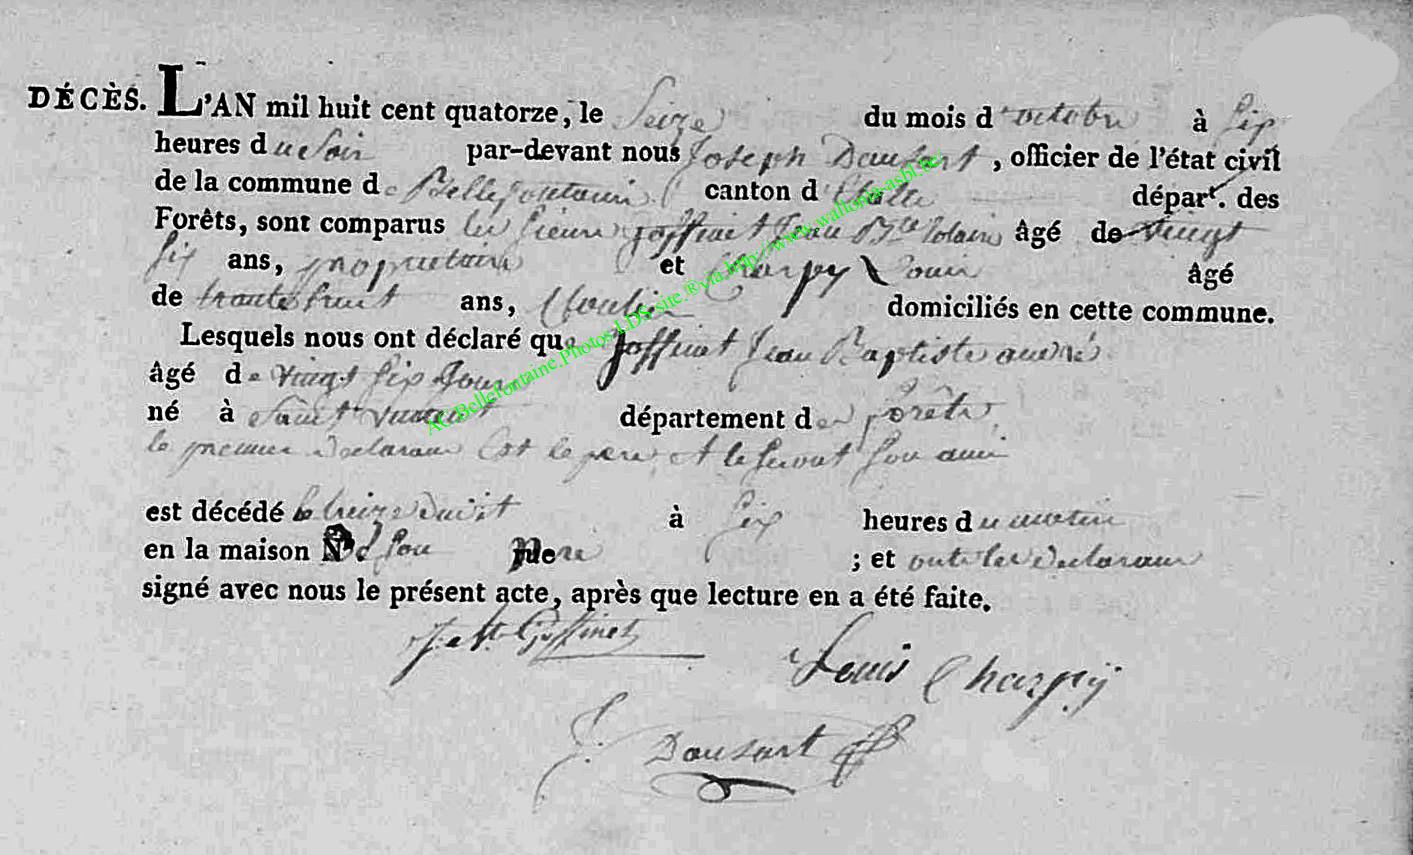 DÉCÈS. L'AN mil huit cent quatorze, le Seize du mois d'octobre à Six
heures du Soir par-devant nous Joseph Dausart, officier de l'état civil
de la commune de Bellefontaine canton d' départ. des
Forêts, sont comparus les Sieurs Goffinet Jean Bte âgé de vingt
Six ans, proprietaire et Charpy Louis âgé
de trante huit ans, domiciliés en cette commune.
Lesquels nous ont déclaré que Goffinet Jean Baptiste andré
âgé de vingt Six Jour
né à Saint vincent département des forêts,
le premier Declarant Est le pere, et le Second Son ami
est décédé le treize dudit à Six heures du matin
en la maison d Son pere ; et ont les declarans
signé avec nous le présent acte, après que lecture en a été faite.
J. Bte Goffinet
Louis Charpÿ
J. Dausart
AC.Bellefontaine.Photos.LDS.site.®via.http://www.wallonia-asbl.be/